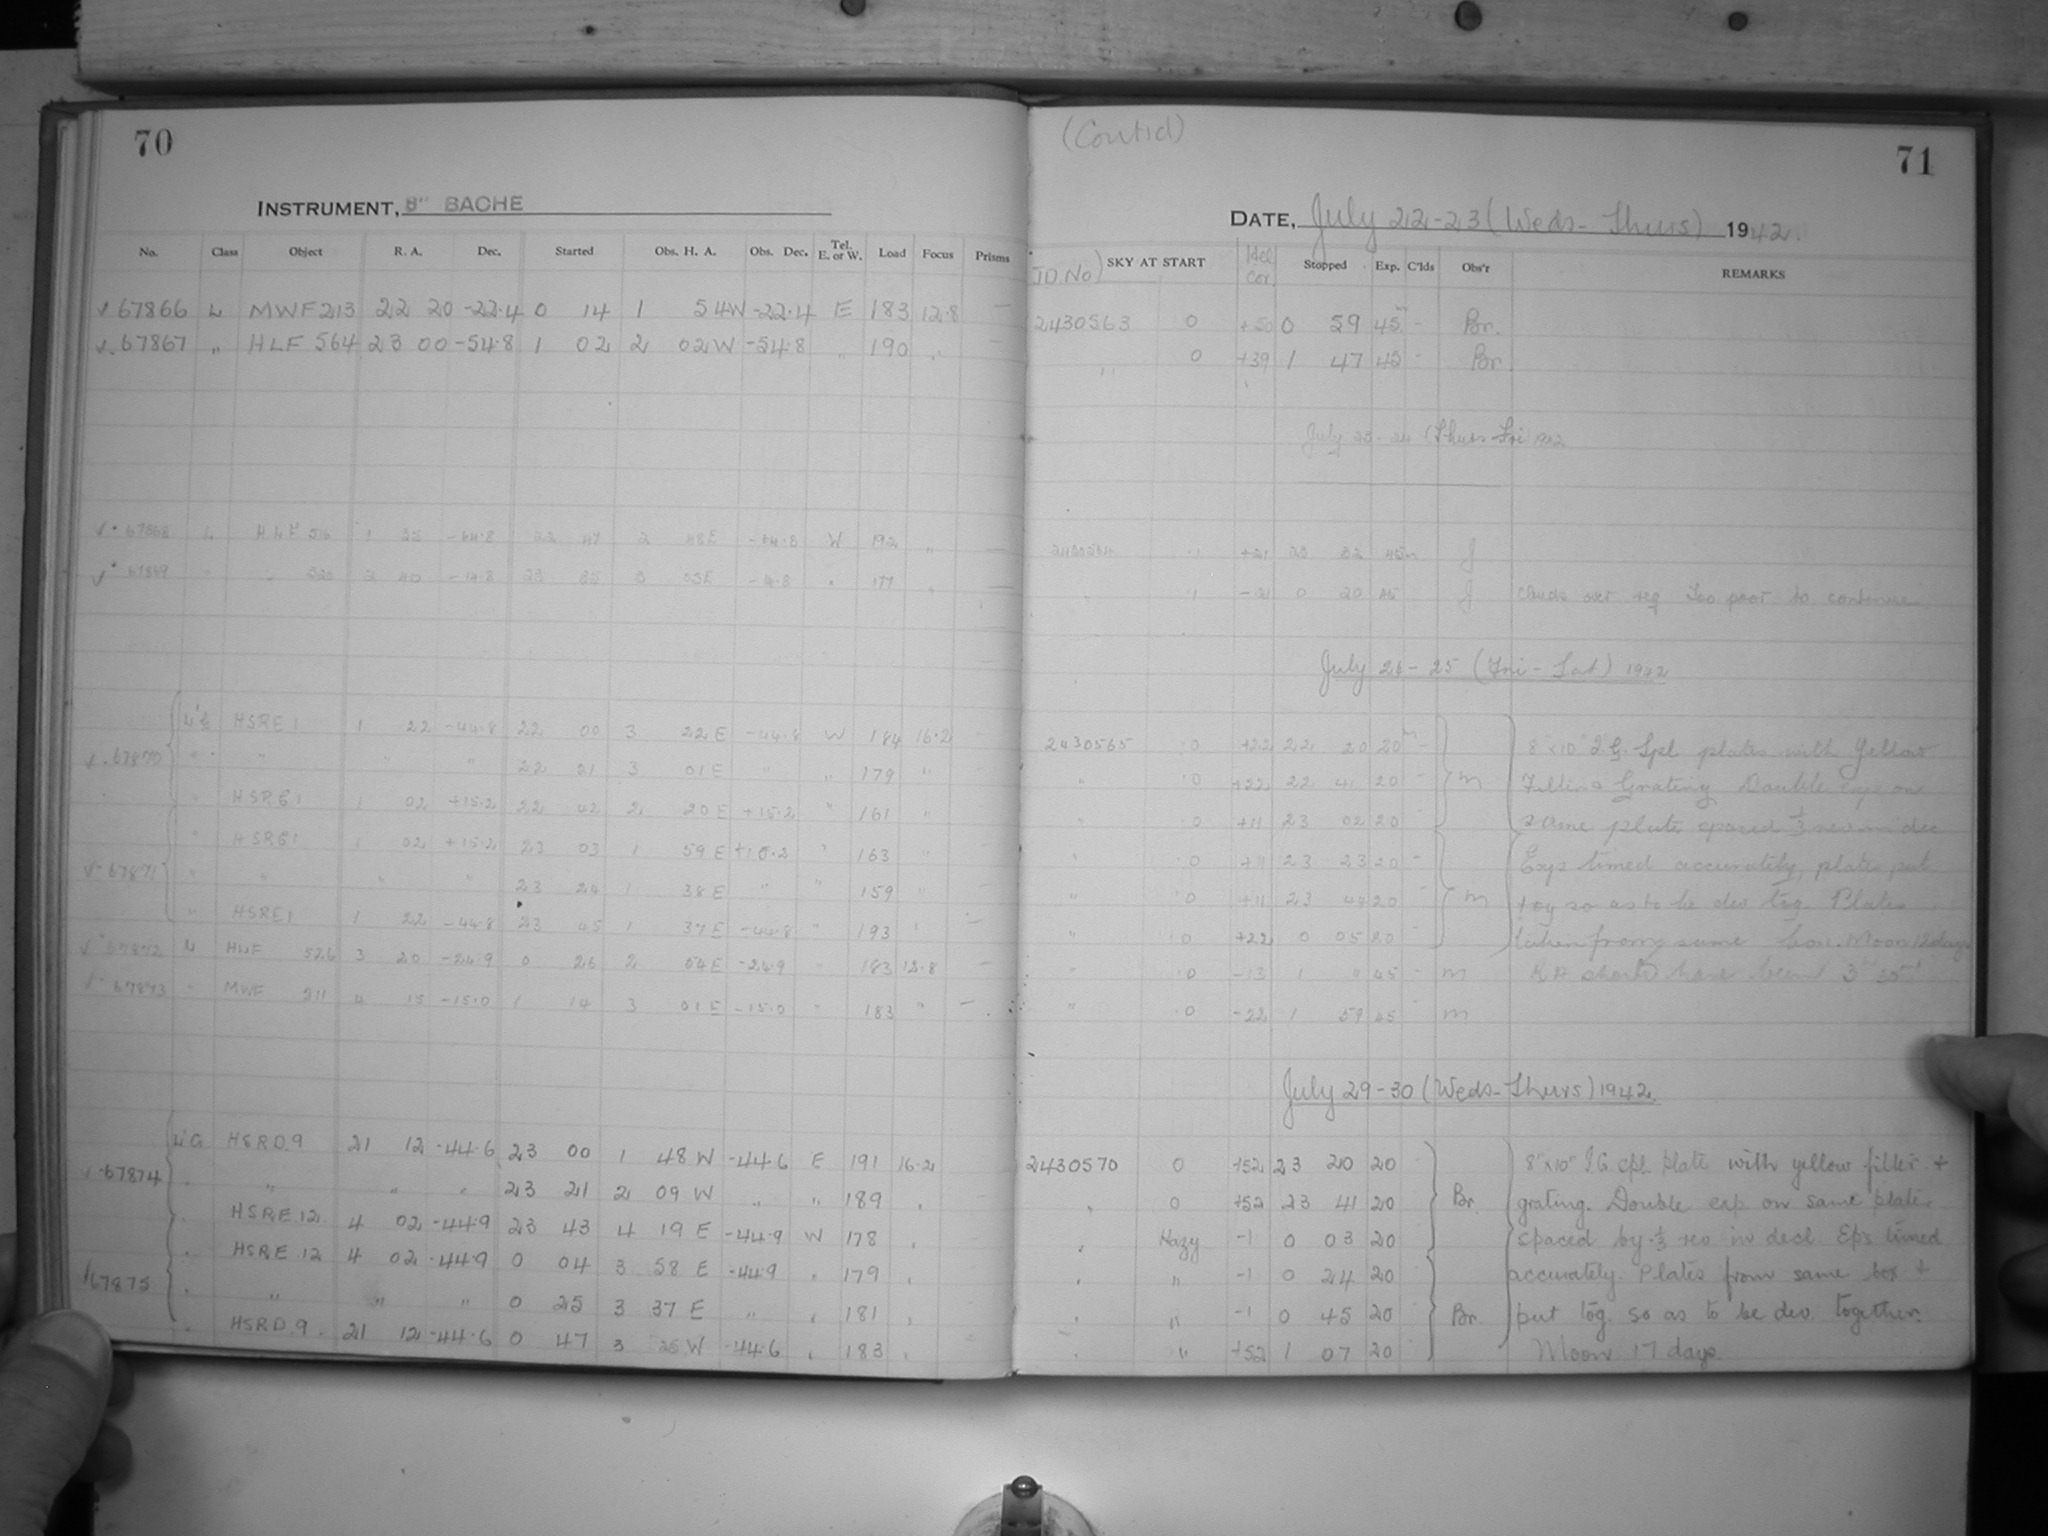 70
INSTRUMENT, 8" BACHE
No. Class Object R. A. Dec. Started Obs. H. A. Obs. Dec. Tel. E. or W. Load Focus Prisms
√ 67866 L MWF 213 22 20 -22.4 0 14 1 54W -22.4 E 183 12.8 —
√. 67867 " HLF 564 23 00 -54.8 1 02 2 02W -54.8 " 190 "
67868 L HLF 1 -64.8 22 47 2 48E W 192 " —
67869 " 2 40 -14.8 23 35 3 03E " 177 "
L HSRE 1 1 22 -44.8 22 00 3 22 E -44.8 W 184 16.2
√ .67870 " " " " 22 21 3 01 E " " 179 "
" HSRE 1 1 02 +15.2 22 42 2 20 E +15.2 " 161 "
" HSRE 1 1 02 +15.2 23 03 1 59 E +15.2 " 163 "
√ 67871 " " " " 23 24 1 38 E " " 159 "
" HSRE 1 1 22 -44.8 23 45 1 37 E -44.8 " 193 "
√ 67872 L HLF 526 3 20 -24.9 0 26 2 54E -24.9 " 183 12.8 —
√ 67873 " MWF 211 4 15 -15.0 1 14 3 01 E -15.0 " 183 " —
HSRD.9 21 12 -44.6 23 00 1 48 W -44.6 E 191 16.2
√ 67874 " " " " 23 21 2 09 W " " 189 "
" HSRE 12 4 02 -44.9 23 43 4 19 E -44.9 W 178 "
" HSRE 12 4 02 -44.9 0 04 3 58 E -44.9 " 179 "
√67875 " " " " 0 25 3 37 E " " 181 "
" HSRD.9 21 12 -44.6 0 47 3 W -44.6 " 183 "
(Contid)
71
DATE, July 22-23 (Weds-Thurs) 1942.
J.D. No) SKY AT START Hel cor. Stopped Exp. C'lds Obs'r REMARKS
2430563 0 +50 0 59 45m - Br.
" 0 +39 1 47 45 - Br
July 23-24 (Thurs-Fri 1942
+21 23 32 45m J
" -21 0 20 45 J Clouds over reg Too poor to continue
July 24-25 (Fri-Sat) 1942
2430565 0 +22 22 20 20m - 8"x10" I.G. Spl plates with Yellow
" 0 +22 22 41 20 - m Filter & Grating Double Exp on
" 0 +11 23 02 20 - same plate spaced 1/3 rev in dec
" 0 +11 23 23 20 - Exps timed accurately, plates put
" 0 +11 23 44 20 - m tog so as to be dev tog. Plates
" 0 +22 0 05 20 - taken from same box. Moon 12 days
" 0 -13 1 11 45 - m R A should have been
" 0 -22 1 59 45 - m
July 29-30 (Weds-Thurs) 1942.
2430570 0 +52 23 20 20 8"x10" I.G. spl. plate with yellow filter +
" 0 +52 23 41 20 Br. grating. Double exp on same plate
" Hazy -1 0 03 20 spaced by 1/3 rev in decl. Exps timed
" " -1 0 24 20 accurately. Plates from same box +
" " -1 0 45 20 Br. put tog. so as to be dev. together.
" " +52 1 07 20 Moon 17 days